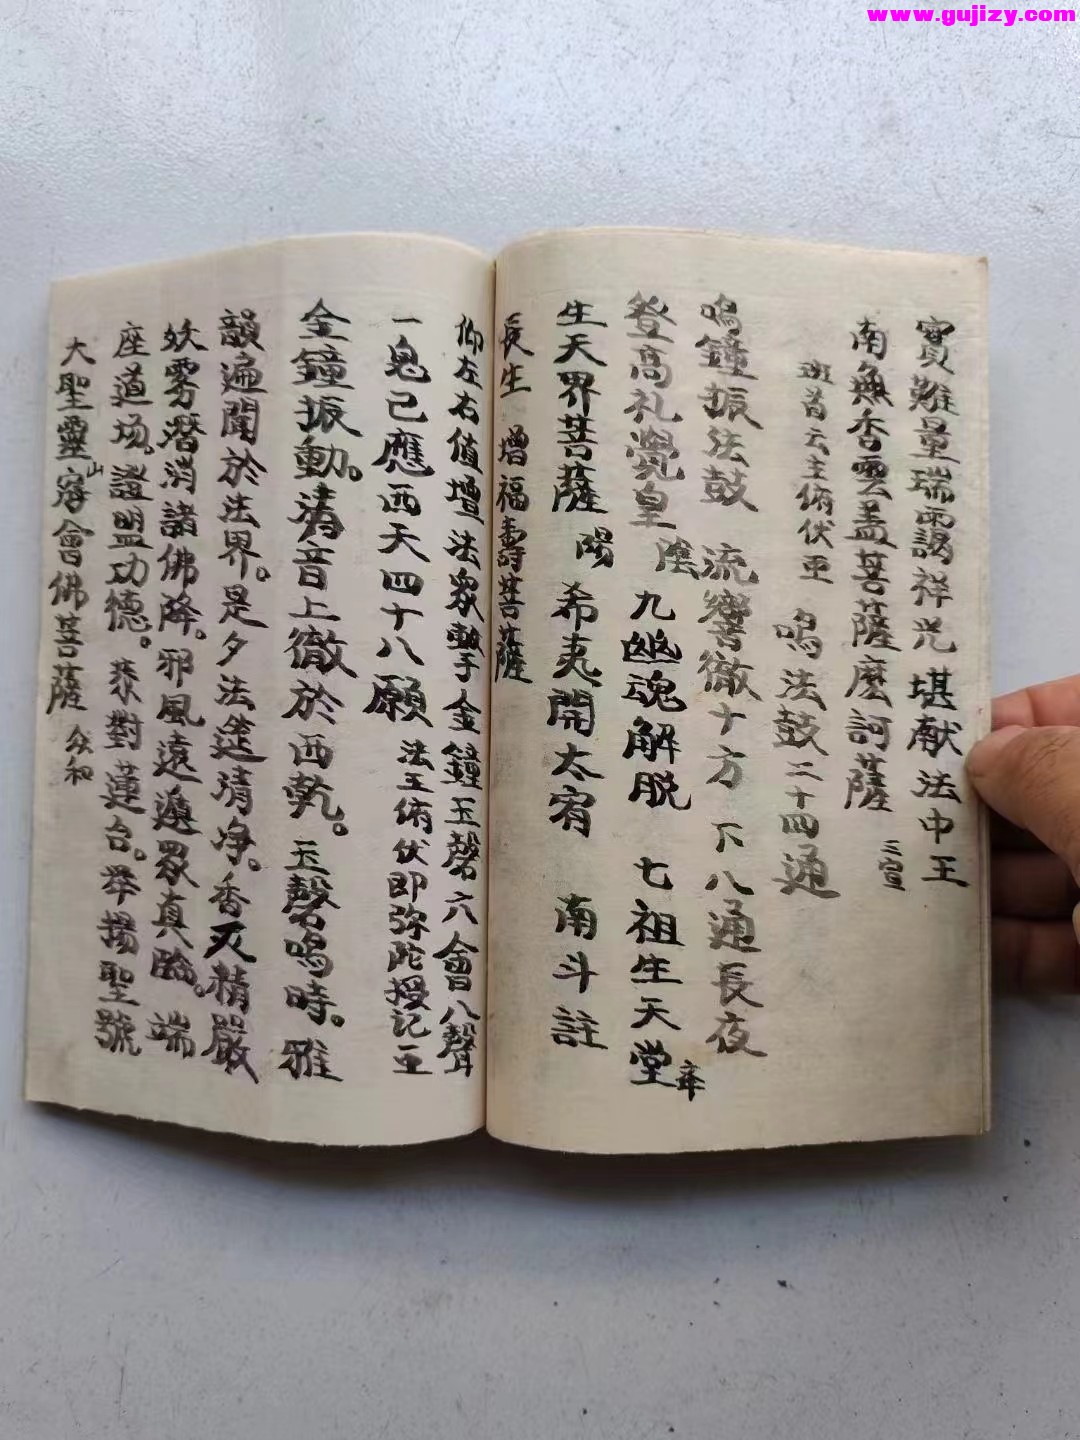 www.gujizy.com
實難量瑞靄祥光 堪献法中王
南無香雲盖菩薩麽訶薩 三宣
班首云主俯伏亜 鳴法鼓二十四通
鳴鐘振法鼓 流響徹十方 下八通長夜
登高礼覺皇 陰 九幽魂解脱 七祖生天堂
生天界菩薩 陽 希夷開太宥 南斗註
長生 增福壽菩薩
仰左右值壇法眾 金鐘玉磬六會八聲
一鬼已應西天四十八願 法王俯伏即弥陀授記亜
金鐘振動。清音上徹於西乾。玉磬鳴時。雅
韻遍聞於法界。是夕法筵清净。香灭精嚴
妖雾潛消諸佛降。邪風遠遁眾真臨。端
座道场。證盟功德。恭對蓮台。举揚聖號
大聖靈山會佛菩薩 众和